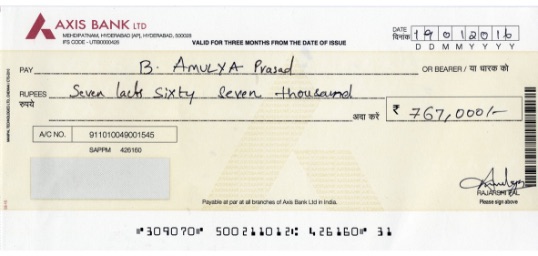 AXIS BANK LTD
MEHDIPATNAM, HYDERABAD [AP], HYDERABAD, 500028
IFS CODE - UTIB0000426
VALID FOR THREE MONTHS FROM THE DATE OF ISSUE
DATE दिनांक 19012016
D D M M Y Y Y Y
PAY B. AMULYA Prasad OR BEARER / या धारक को
RUPEES रुपये Seven lacts Sixty Seven thousand
अदा करें ₹ 767,000/-
A/C NO. 911010049001545
SAPPM 426160
Payable at par at all branches of Axis Bank Ltd in India.
Please sign above
⑈309070⑈ 500211012⑆ 426160⑈ 31